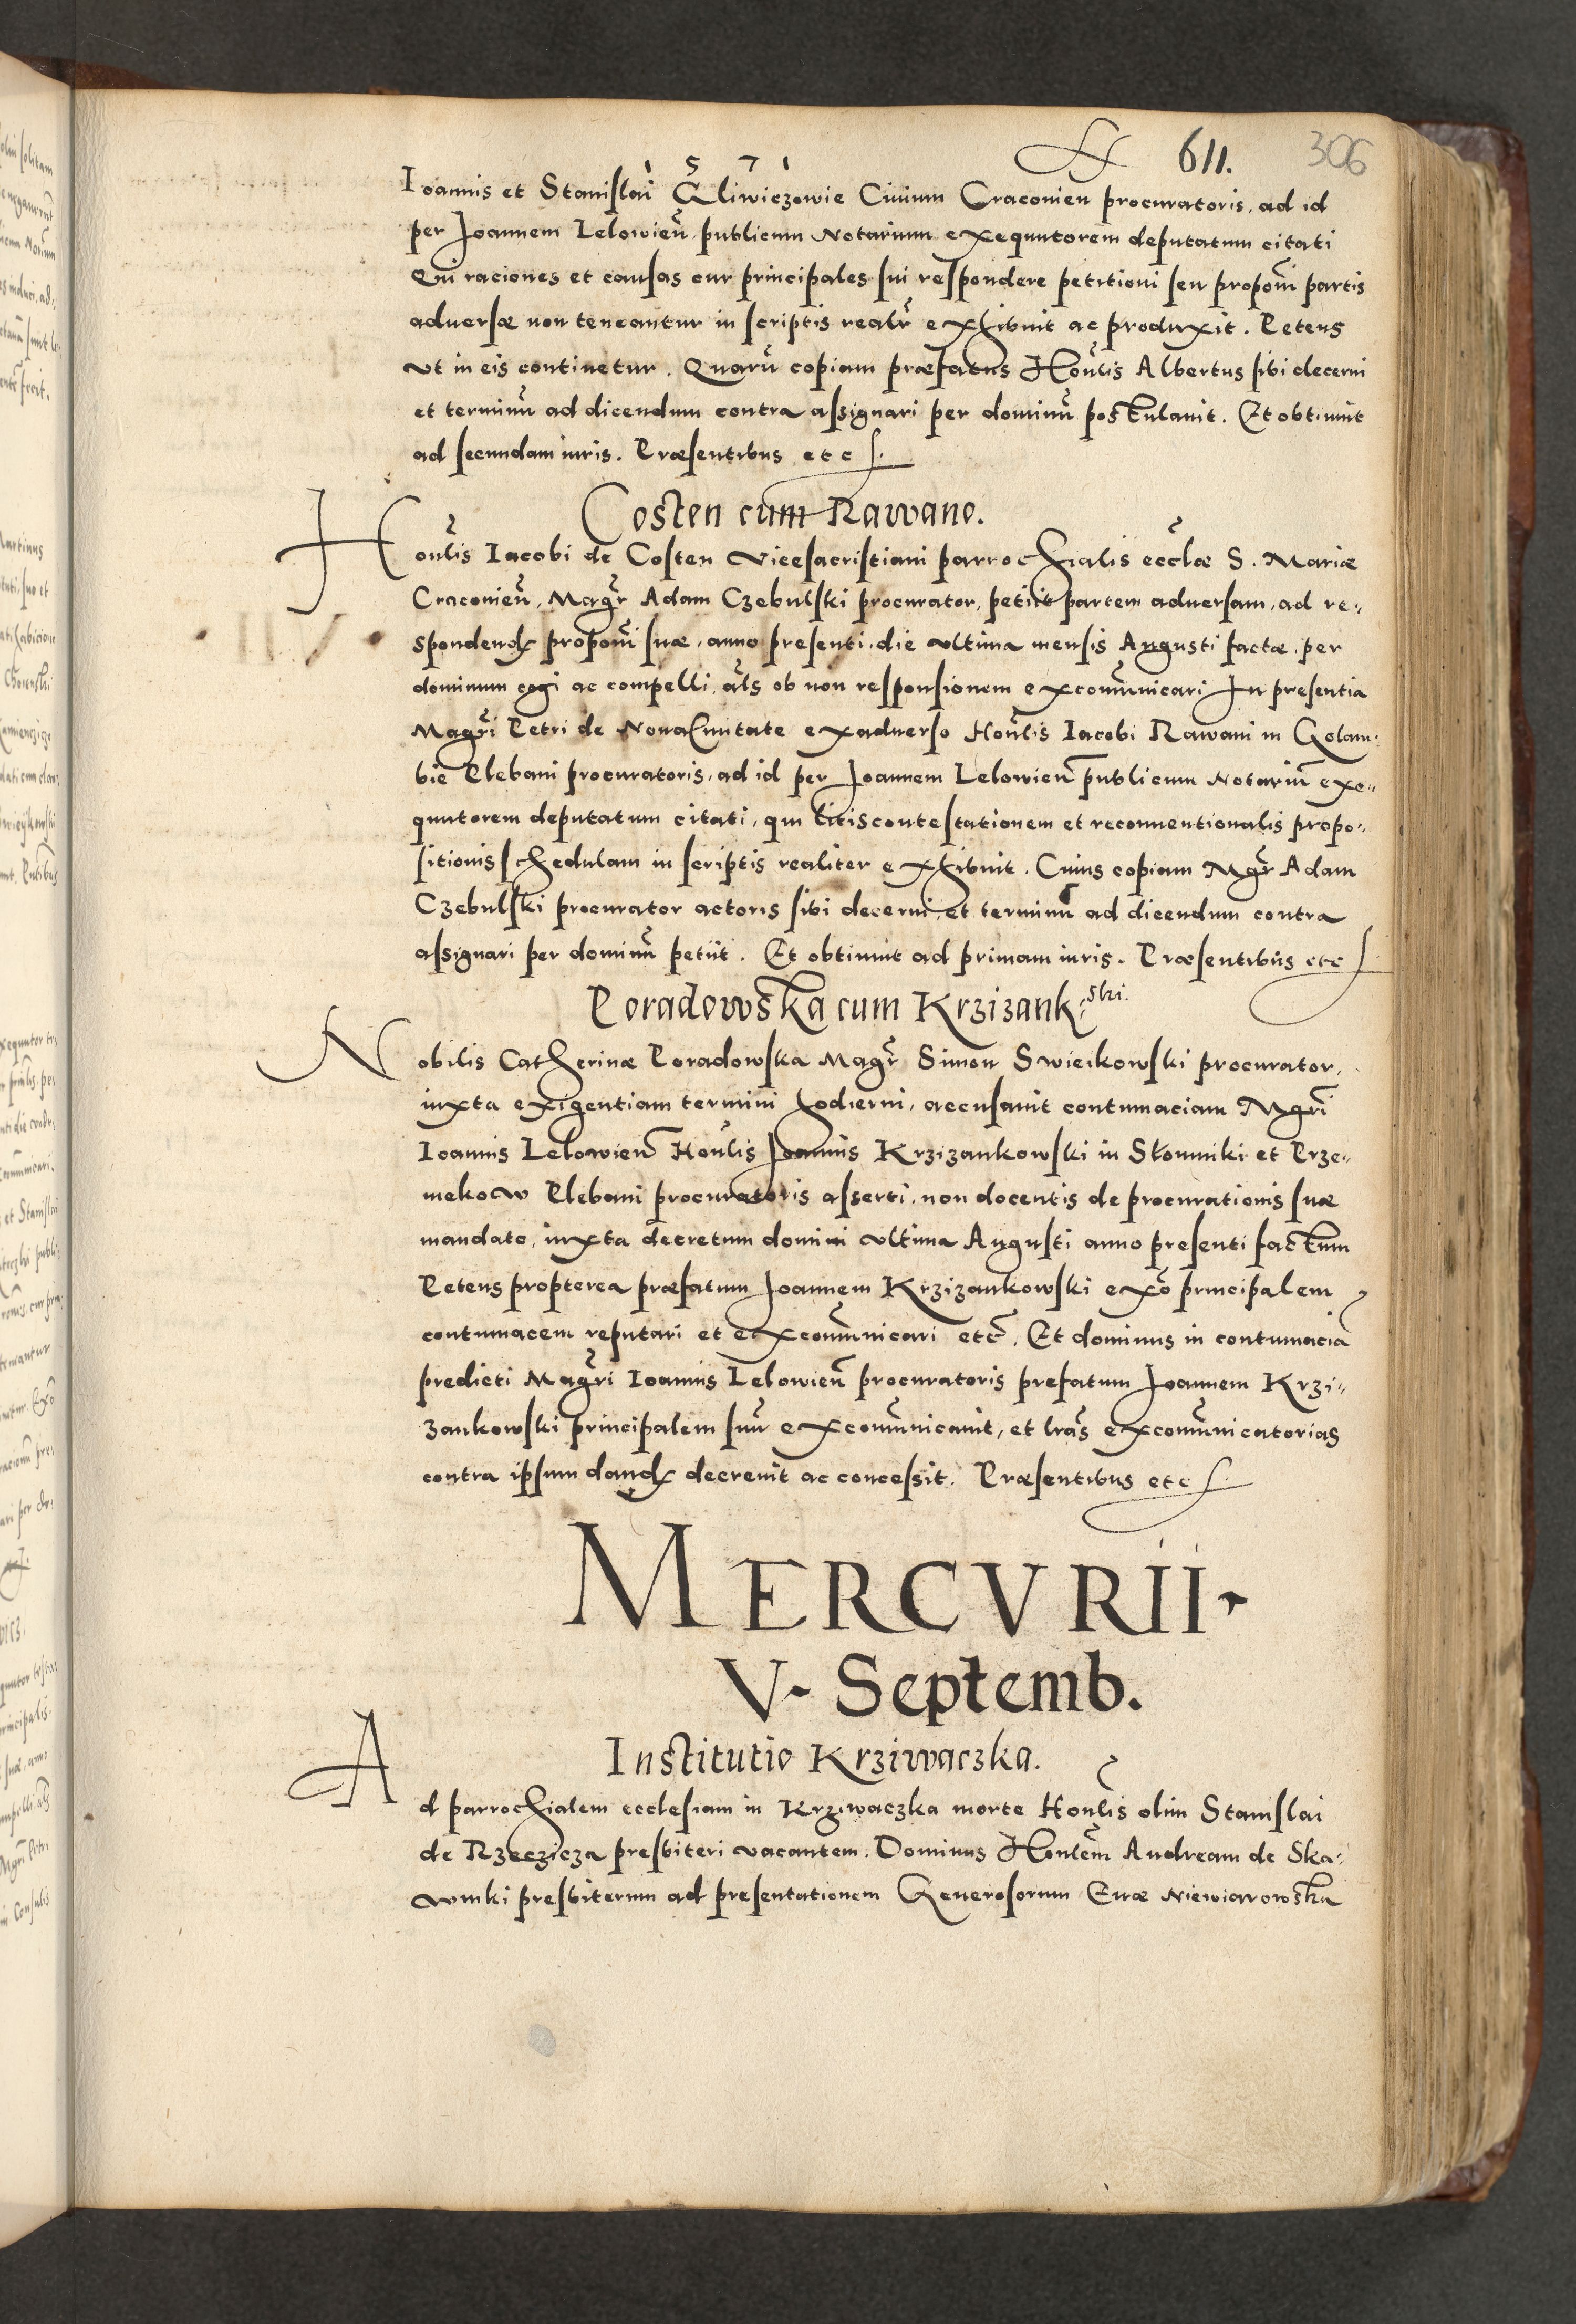 611. 306
1 5 7 1
Ioannis et Stanislai Gliwiczowie Ciuium Craconien procuratoris, ad id
per Joannem Lelowien̄ publicum Notarium exequutorem deputatum citati
Qui raciones et causas cur principales sui respondere petitioni seu proponi partis
aduersæ non teneantur in scriptis realr exhibuit ac produxit. Petens
vt in eis continetur. Quarū copiam præfatus Honlis Albertus sibi decerni
et terminū ad dicendum contra assignari per dominū postulauit. Et obtinuit
ad secundam iuris. Præsentibus etc
Costen cum Rawano.
Honlis Iacobi de Costen Vicesacristiani parrochialis ecclæ S. Mariæ
Craconien̄, Magr Adam Czebulski procurator, petiit partem aduersam, ad re-
spondend proponi suæ, anno presenti die vltima mensis Augusti factæ, per
dominum cogi ac compelli, als ob non responsionem excomūnicari In presentia
Magri Petri de Noua Ciuitate exaduerso Honlis Iacobi Rawani in Golam-
bie Plebani procuratoris, ad id per Joannem Lelowien̄ publicum Notariū exe-
quutorem deputatum citati, qui litiscontestationem et reconuentionalis propo-
sitionis schedulam in scriptis realiter exhibuit. Cuius copiam Mgr Adam
Czebulski procurator actoris sibi decerni, et terminū ad dicendum contra
assignari per dominū petiit. Et obtinuit ad primam iuris. Præsentibus etc
Poradowska cum Krzizankski.
Nobilis Catherinæ Poradowska Magr Simon Swieikowski procurator,
iuxta exigentiam termini hodierni, accusauit contumaciam Mgri
Ioannis Lelowien̄ Honlis Joannis Krzizankowski in Słomniki et Prze-
mekow Plebani procuratoris asserti, non docentis de procurationis suæ
mandato, iuxta decretum domini vltima Augusti anno presenti factum
Petens propterea præfatum Joannem Krzizankowski exō principalem
contumacem reputari et excomūnicari etc. Et dominus in contumaciā
predicti Magri Ioannis Lelowien̄ procuratoris prefatum Joannem Krzi-
zankowski principalem suū excomūnicauit, et lras excomūnicatorias
contra ipsum dand decreuit ac concessit. Præsentibus etc
MERCVRII.
V. Septemb.
Institutio Krziwaczka.
Ad parrochialem ecclesiam in Krziwaczka morte Honlis olim Stanislai
de Rzeczicza presbiteri vacantem. Dominus Honlem Andream de Ska-
winki presbiterum ad presentationem Generosorum Euæ Niewiarowska